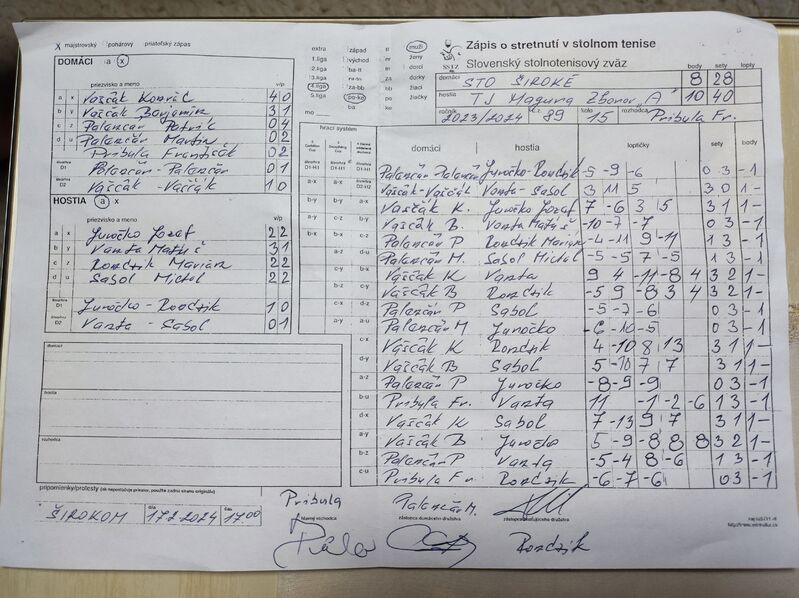 X majstrovský pohárový priateľský zápas
DOMÁCI a x
priezvisko a meno v/p
a x Vaščák Konrád 4 0
b y Vaščák Benjamín 3 1
c z Palenčár Patrić 0 4
d u Palenčár Martin 0 2
Pribula František 0 2
D1 Palenčár - Palenčár 0 1
D2 Vaščák - Vaščák 1 0
HOSTIA a x
priezvisko a meno v/p
a x Juročko Jozef 2 2
b y Vanta Matúš 3 1
c z Rondzik Marián 2 2
d u Sabol Michal 2 2
D1 Juročko - Rondzik 1 0
D2 Vanta - Sabol 0 1
domáci
hostia
rozhodca
pripomienky/protesty
ŠIROKOM dňa 17.2.2024 čas 17.00
extra západ muži
1.liga východ ženy
2.liga ba-tt dorci
3.liga dorky
4.liga za-bb žiaci
5.liga po-ke žiačky
mo ba ke
Zápis o stretnutí v stolnom tenise
SSTZ Slovenský stolnotenisový zväz
body sety lopty
domáci STO ŠIROKÉ 8 28
hostia TJ Magura Zborov "A" 10 40
ročník 2023/2024 č.z. 89 kolo 15 rozhodca Pribula Fr.
hrací systém domáci hostia loptičky sety body
Palenčár Palenčár Juročko-Rondzik -5 -9 -6 0 3 -1
Vaščák-Vaščák Vanta-Sabol 3 11 5 3 0 1-
Vaščák K. Juročko Jozef 7 -6 3 5 3 1 1-
Vaščák B. Vanta Matúš -10 -7 -7 0 3 -1
Palenčár P Rondzik Marián -4 -11 9 -11 1 3 -1
Palenčár M. Sabol Michal -5 -5 7 -5 1 3 -1
Vaščák K Vanta 9 4 -11 -8 4 3 2 1-
Vaščák B Rondzik -5 9 -8 3 4 3 2 1-
Palenčár P Sabol -5 -7 -6 0 3 -1
Palenčár M Juročko -6 -10 -5 0 3 -1
Vaščák K Rondzik 4 -10 8 13 3 1 1-
Vaščák B Sabol 5 -10 7 7 3 1 1-
Palenčár P Juročko -8 -9 -9 0 3 -1
Pribula Fr. Vanta 11 -1 -2 -6 1 3 -1
Vaščák K Sabol 7 -13 9 7 3 1 1-
Vaščák B Juročko 5 -9 -8 8 8 3 2 1-
Palenčár P Vanta -5 -4 8 -6 1 3 -1
Pribula Fr. Rondzik -6 -7 -6 0 3 -1
Pribula Palenčár M.
hlavný rozhodca zástupca domáceho družstva zástupca hosťujúceho družstva
Rondzik